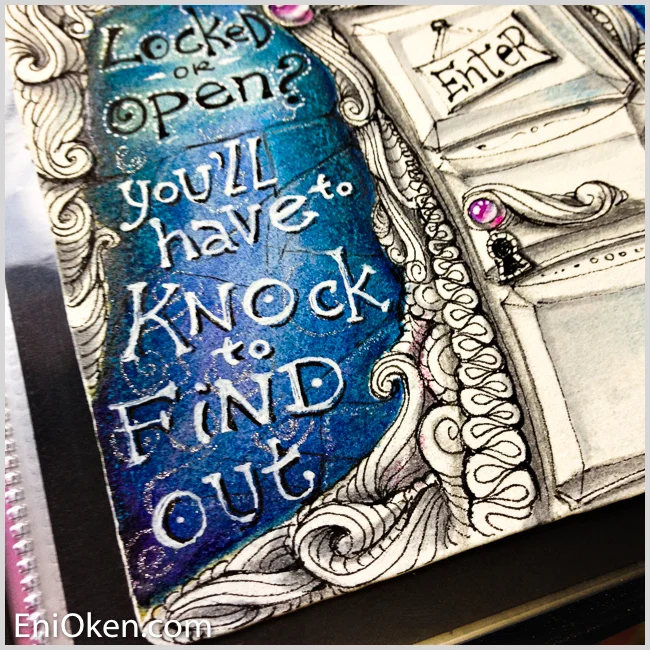 Locked
or
Open?
you'll
have to
Knock
to
Find
out
Enter
EniOken.com